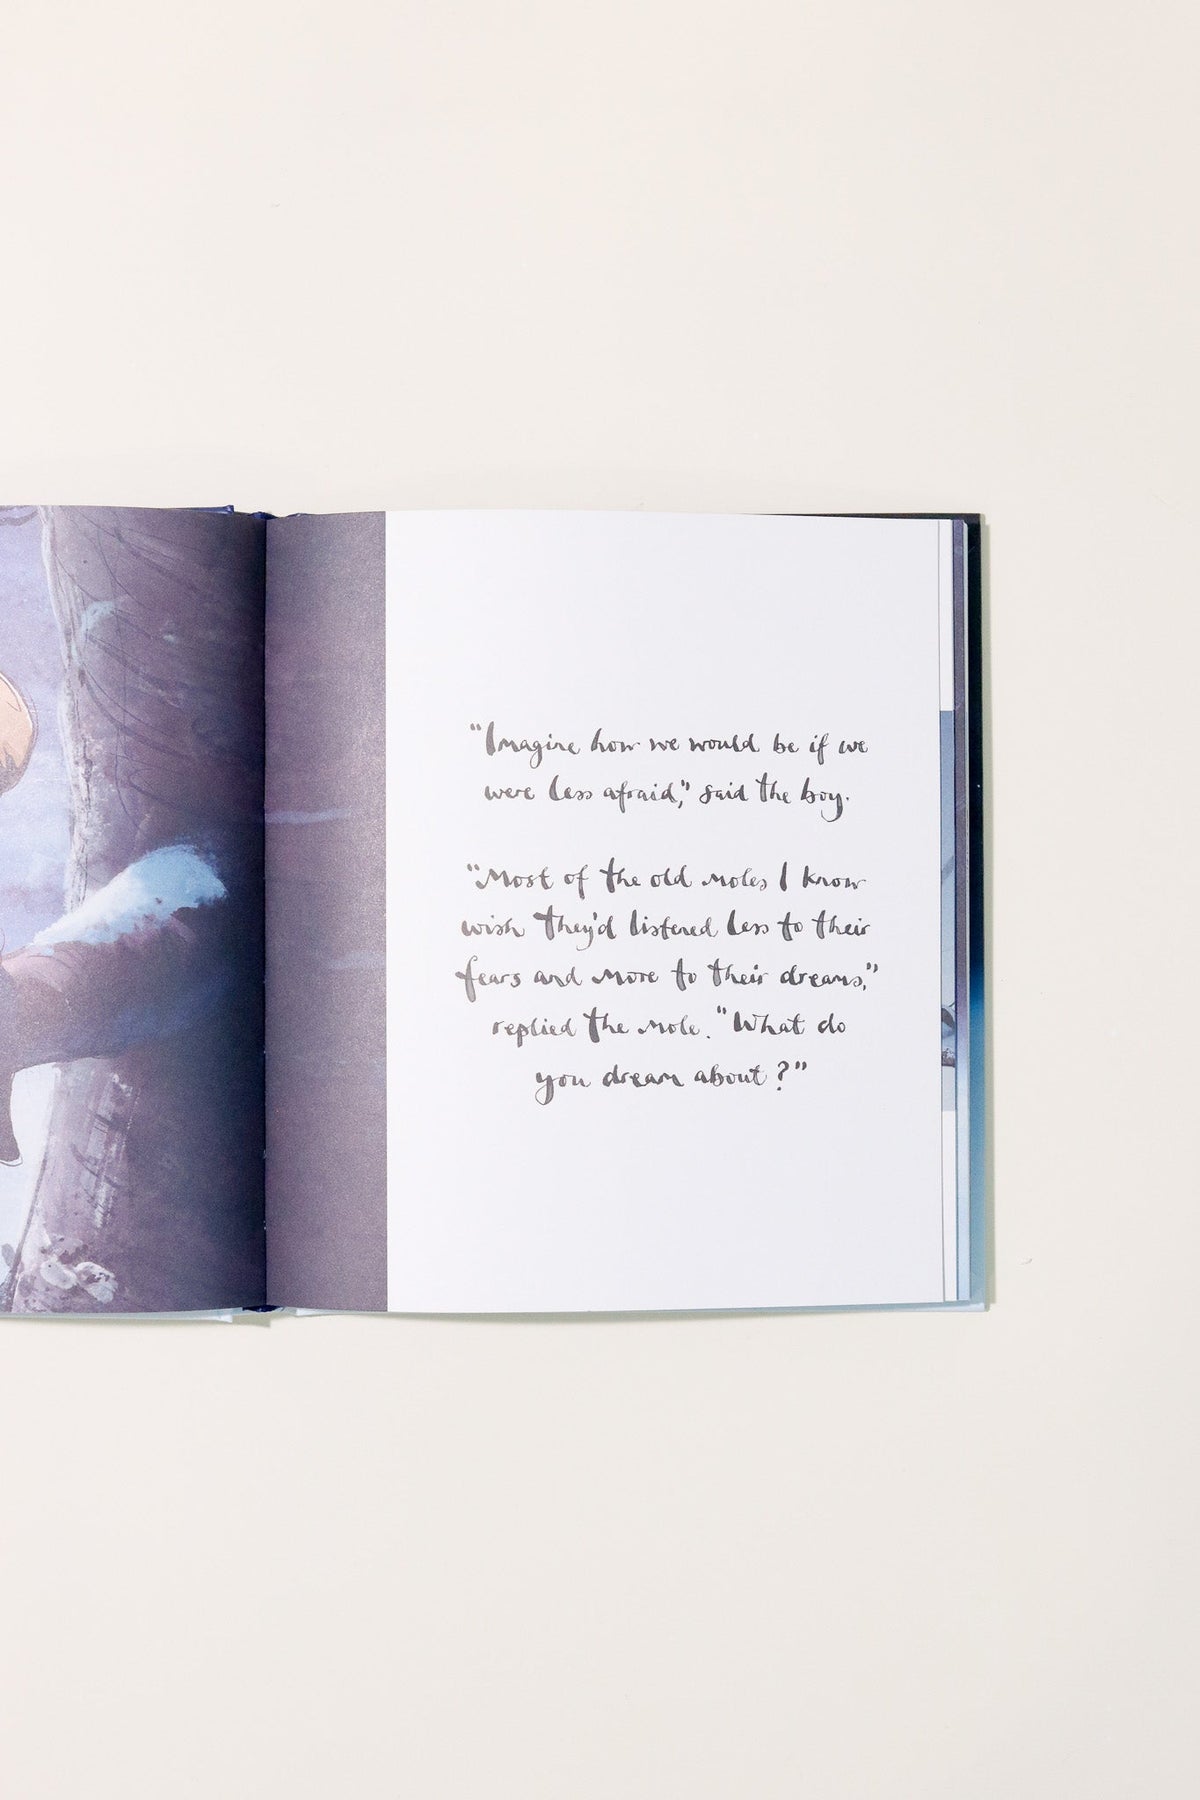 "Imagine how we would be if we
were less afraid," said the boy.
"Most of the old moles I know
wish they'd listened less to their
fears and more to their dreams,"
replied the mole. "What do
you dream about?"